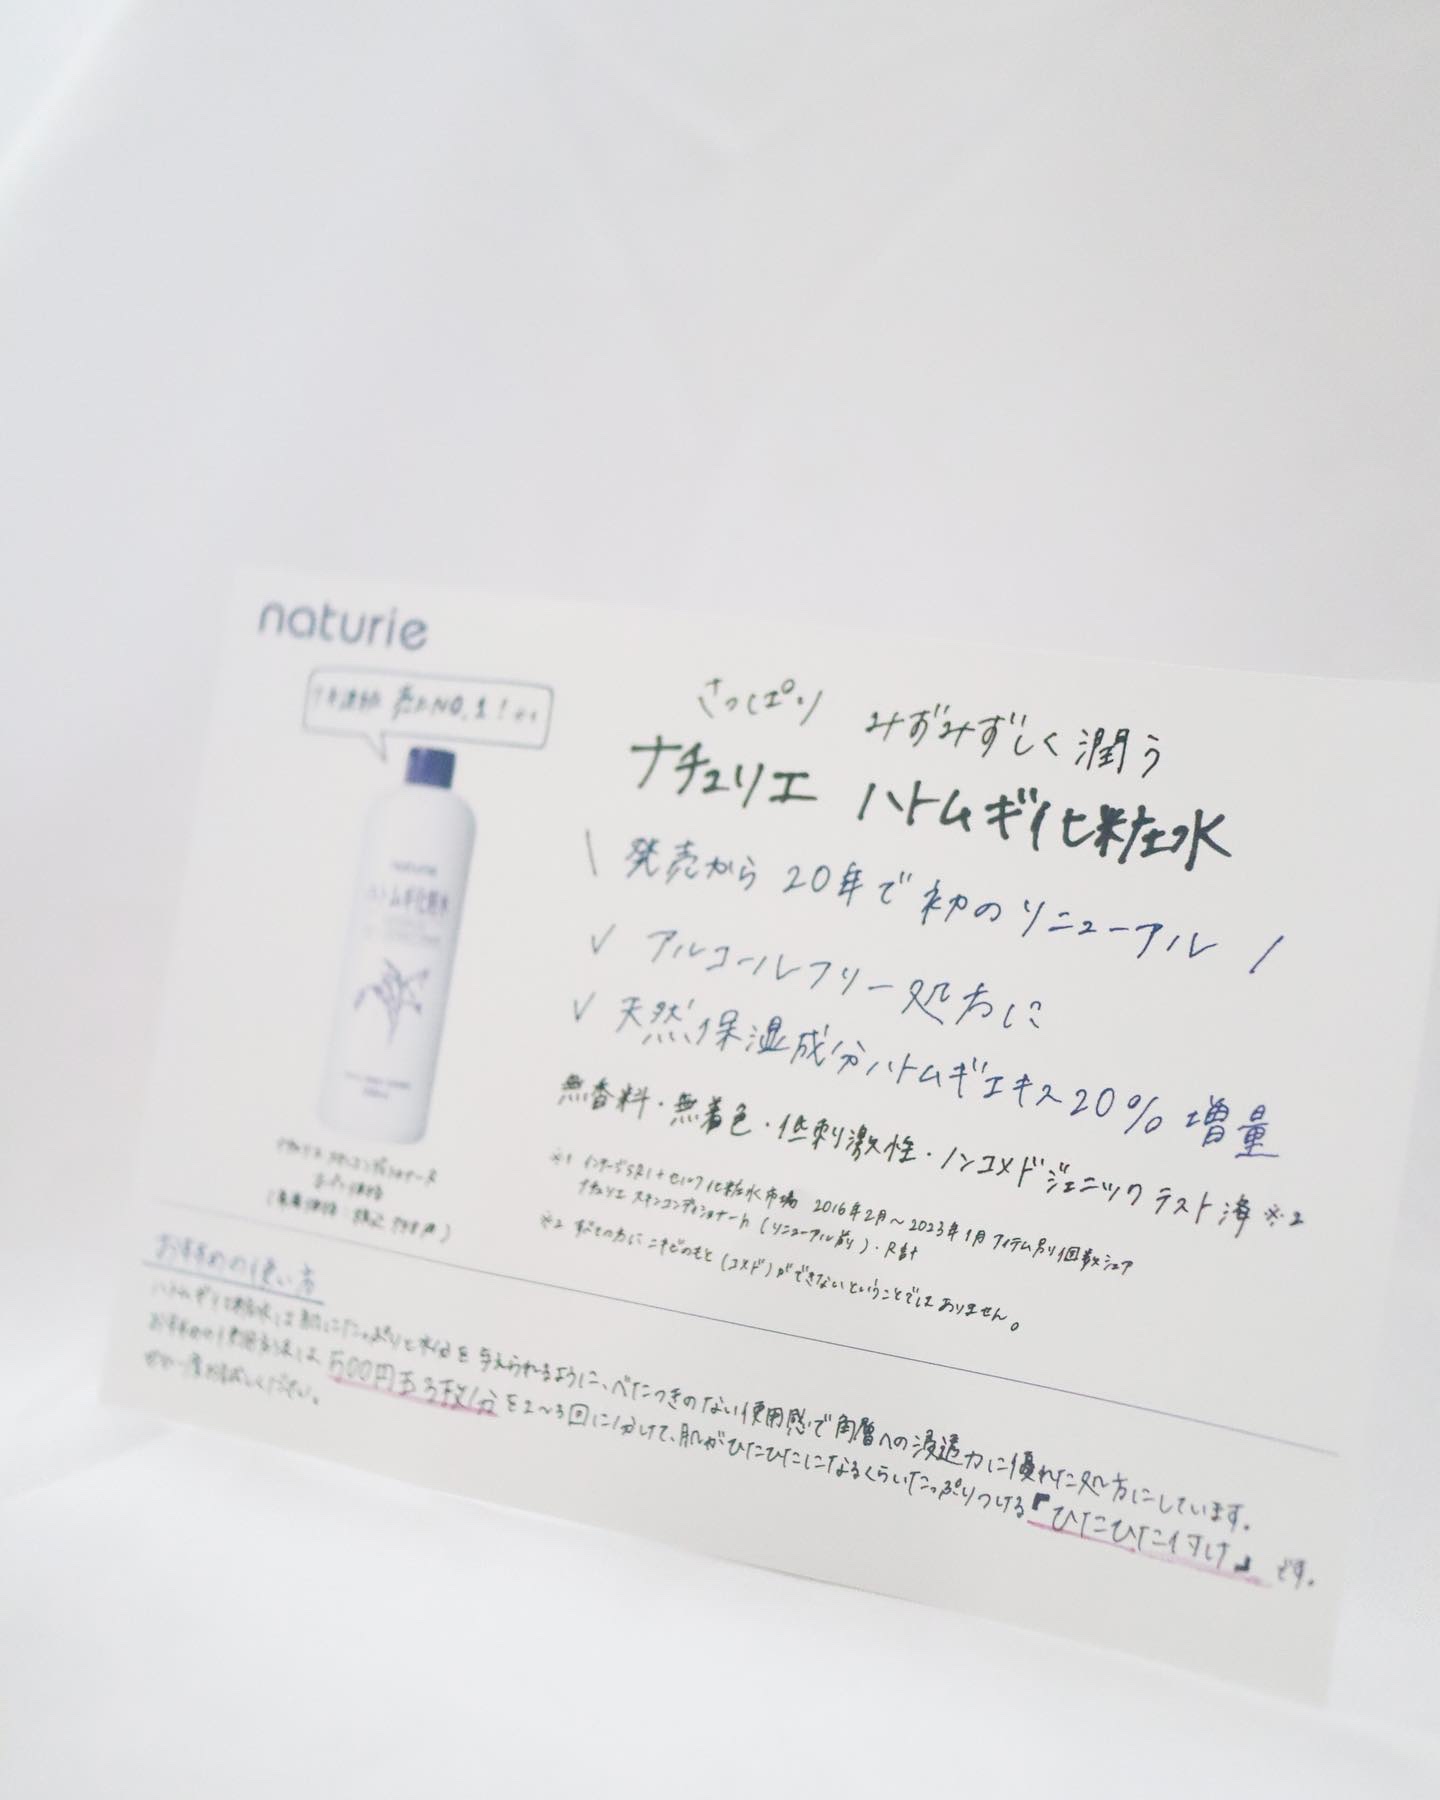 naturie
年連続 売上NO.1!※1
さっぱり みずみずしく潤う
ナチュリエ ハトムギ化粧水
\ 発売から 20年で 初の リニューアル /
✓ アルコールフリー処方に
✓ 天然保湿成分ハトムギエキス20%増量
無香料・無着色・低刺激性・ノンコメドジェニックテスト済※2
※1 インテージSRI+セルフ化粧水市場 2016年2月〜2023年1月 アイテム別個数シェア
ナチュリエ スキンコンディショナー h (リニューアル前)・R計
※2 すべての方に ニキビのもと (コメド) ができないということではありません。
naturie
ハトムギ化粧水
ナチュリエ スキンコンディショナー
おすすめの使い方
ハトムギ化粧水は肌にたっぷりと水分を 与えられるように、べたつきのない使用感で角層への浸透力に優れた処方にしています。
おすすめの使用方法は 500円玉3枚分を2〜3回に分けて、肌がひたひたになるくらいたっぷりつける『ひたひた付け』です。
ぜひ一度お試しください。